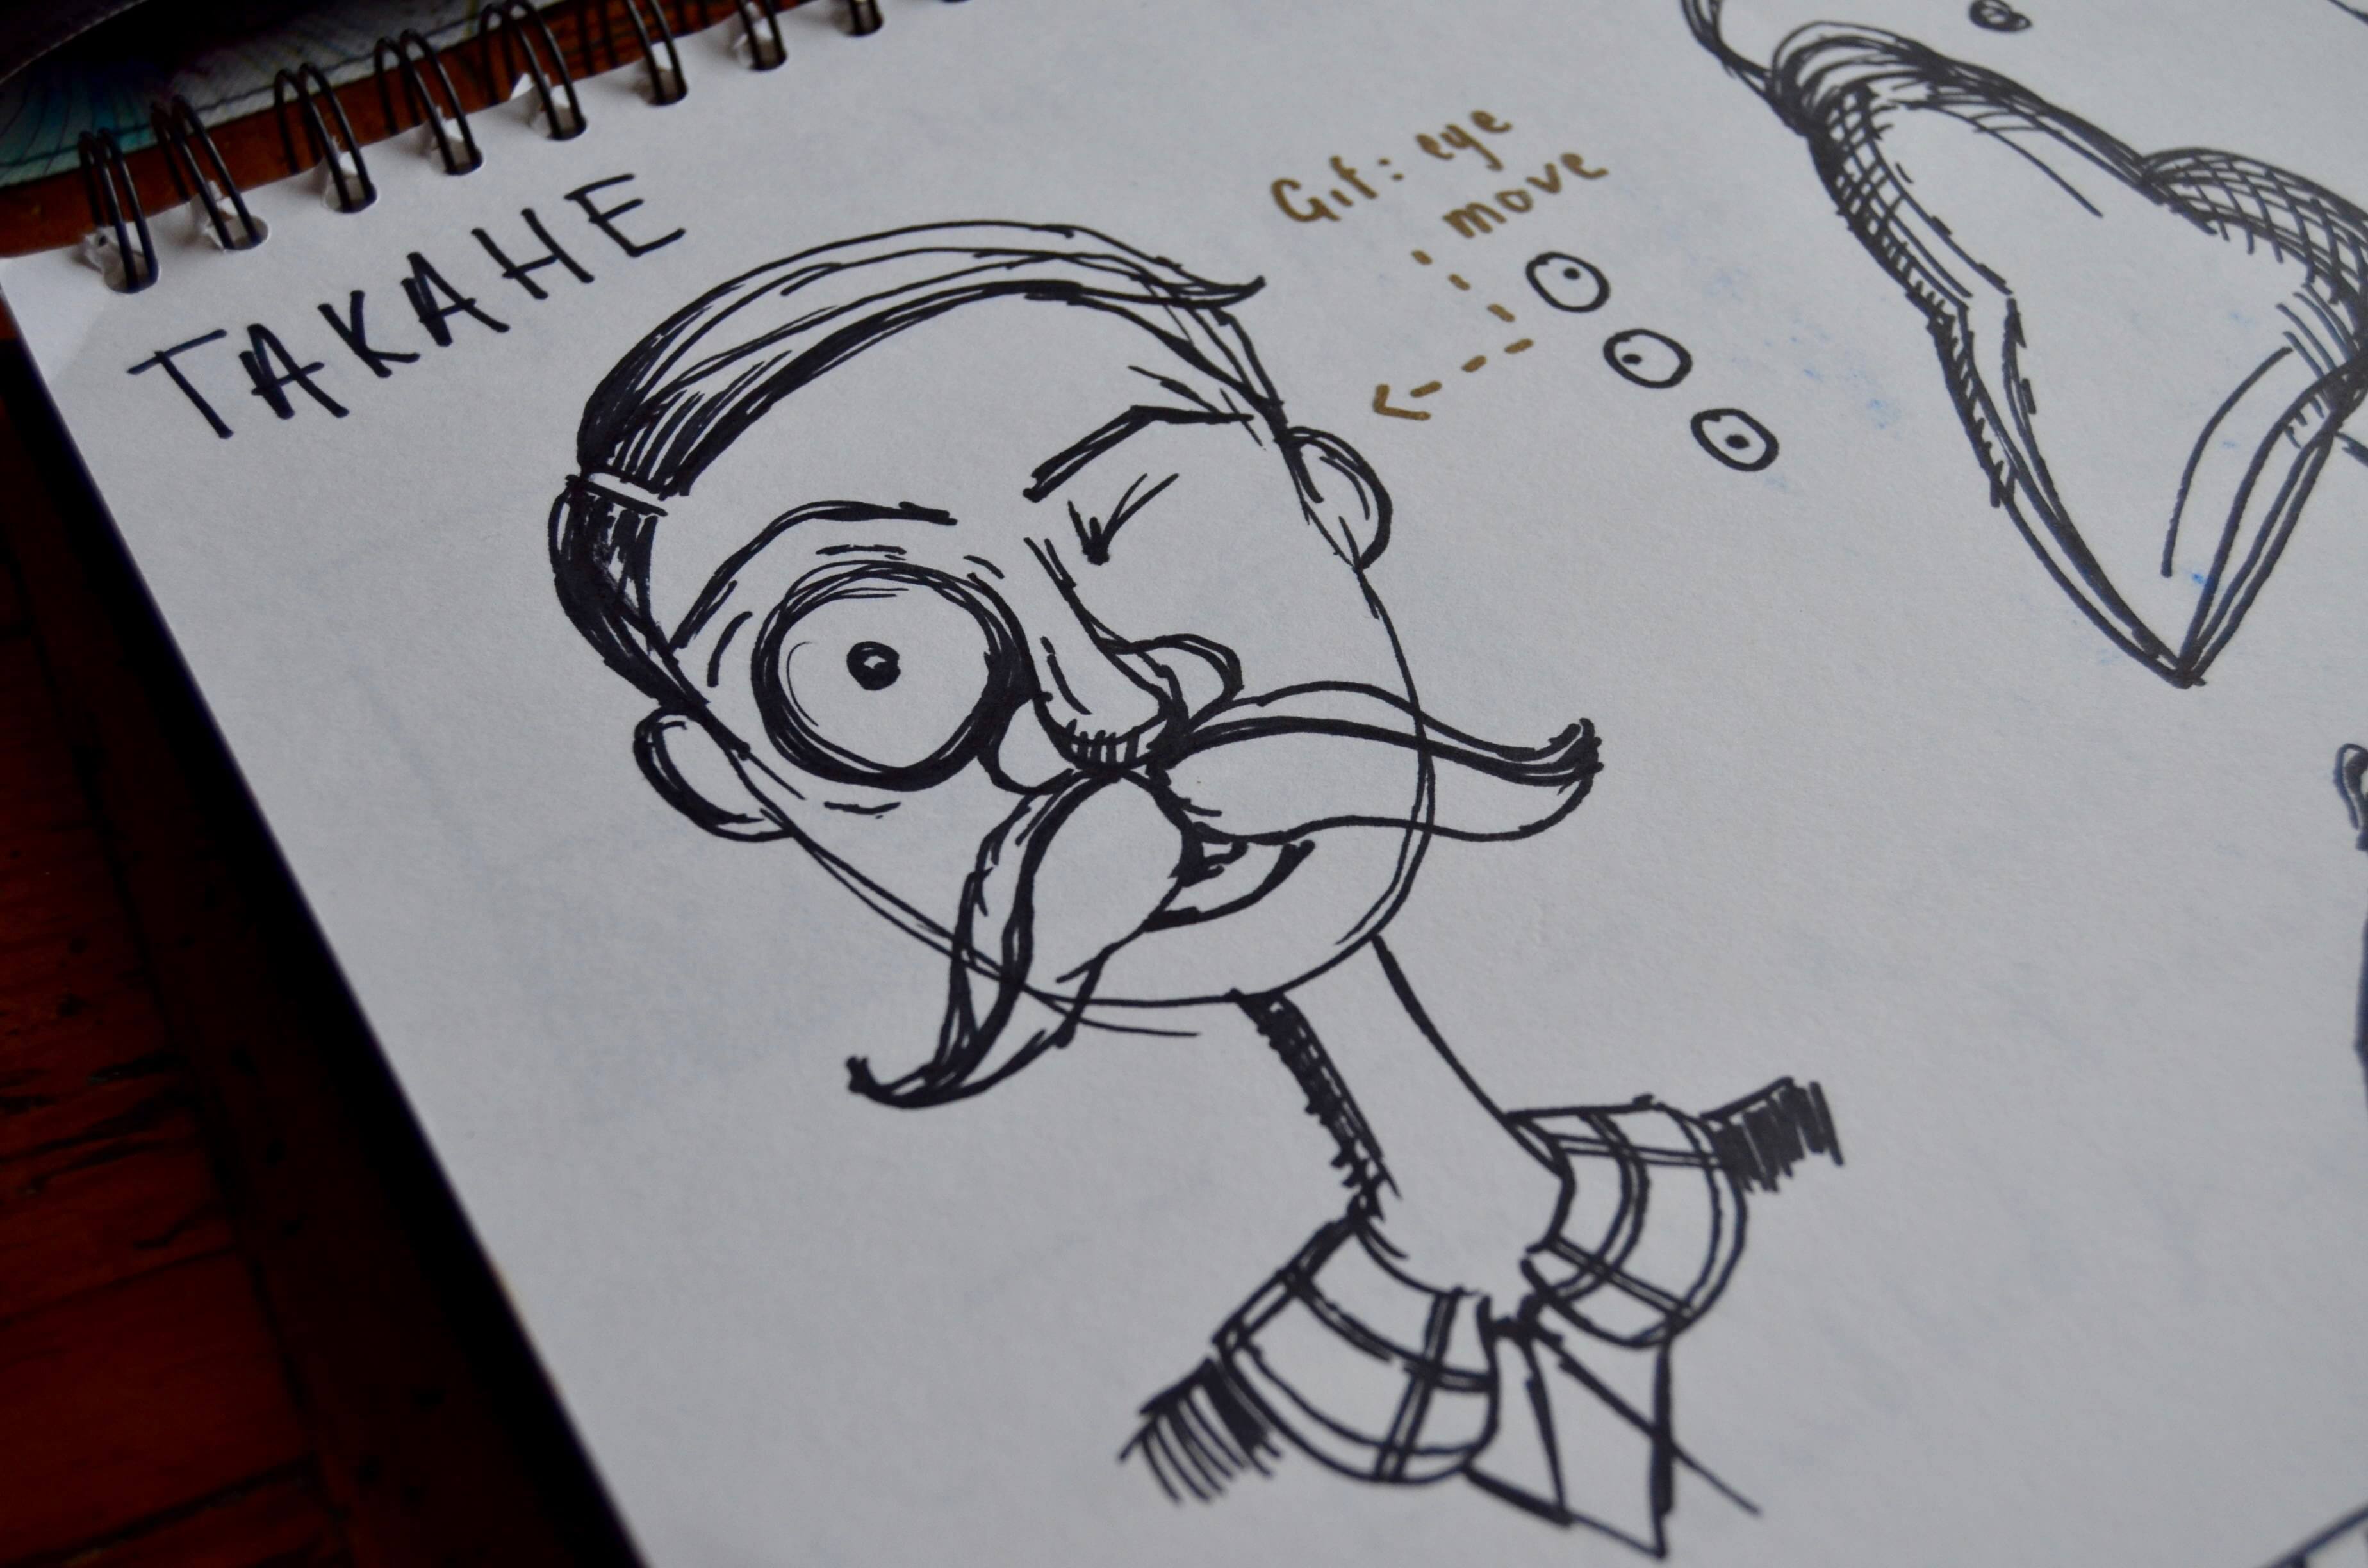 TAKAHE
Gif: eye
move